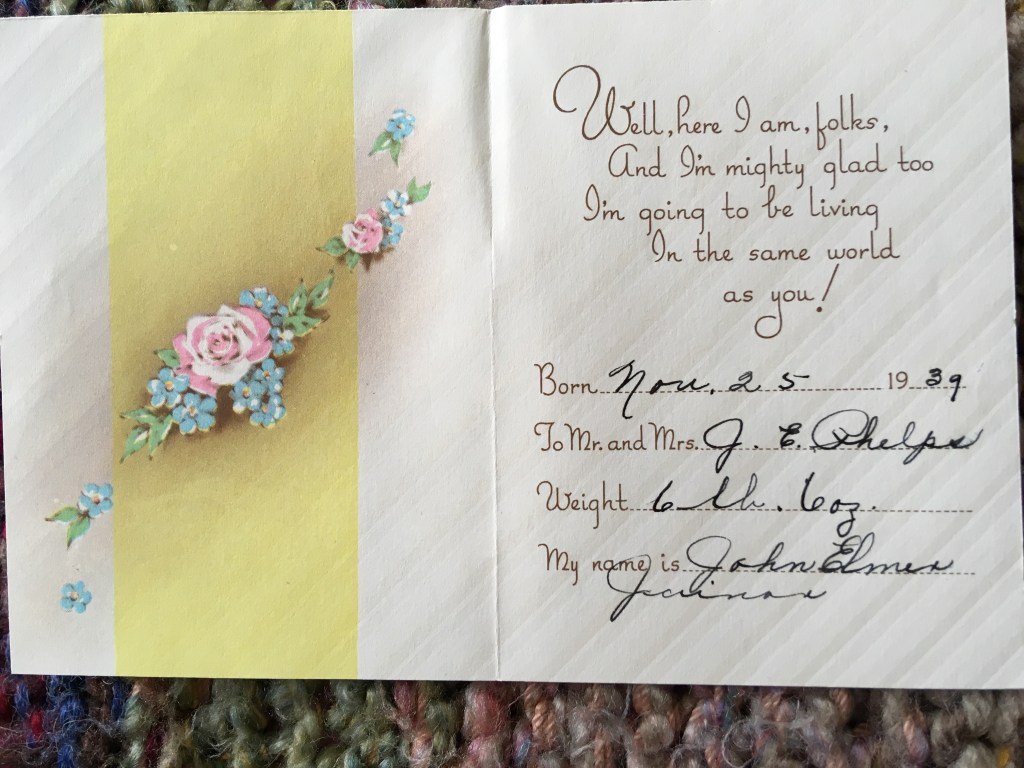 Well, here I am, folks,
And I'm mighty glad too
I'm going to be living
In the same world
as you!
Born Nov. 25 1939
To Mr. and Mrs. J. E. Phelps
Weight 6 lb. 6 oz.
My name is John Elmer